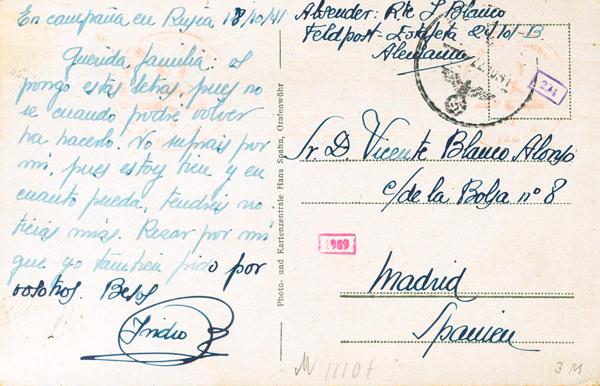 En campaña en Rusia 18/10/41
Querida familia: os
pongo estas letras, pues no
se cuando podré volver
ha hacerlo. No sufrais por
mi, pues estoy bien y en
cuanto pueda, tendreis no
ticias mias. Rezar por mi
que yo también pido por
vosotros. Besos
Isidro
Photo- und Kartenzentrale Hans Spahn, Grafenwöhr
Absender: Rte I Blanco
Feldpost-Estafeta
Alemania
22.10.41
Sr. D. Vicente Blanco Alonso
c/ de la Bolsa nº 8
1989
Madrid
Spanien
3 M